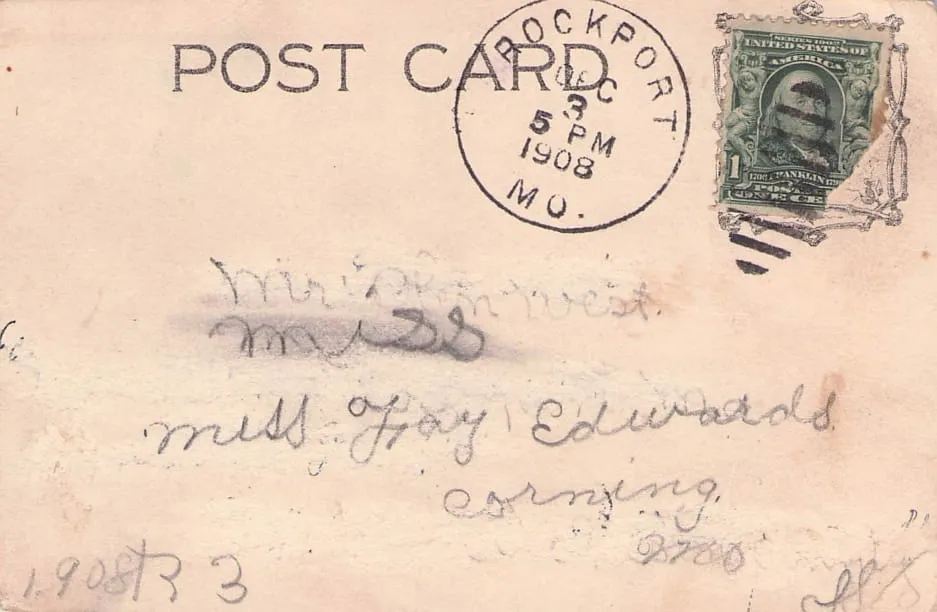 POST CARD
ROCKPORT
DEC
3
5 PM
1908
MO.
SERIES 1902
UNITED STATES OF
AMERICA
1
FRANKLIN
Mr West
Miss
Miss Fay Edwards
Corning
Mo
1908 R 3